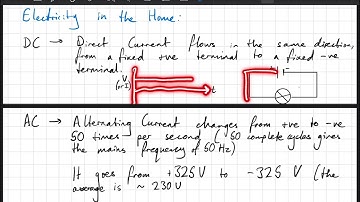 Electricity in the Home:
DC → Direct Current flows in the same direction,
from a fixed +ve terminal to a fixed -ve
terminal.
V
(or I)
t
AC → Alternating Current changes from +ve to -ve
50 times per second (50 complete cycles gives
the mains frequency of 50Hz)
It goes from +325V to -325V (the
average is ~ 230V